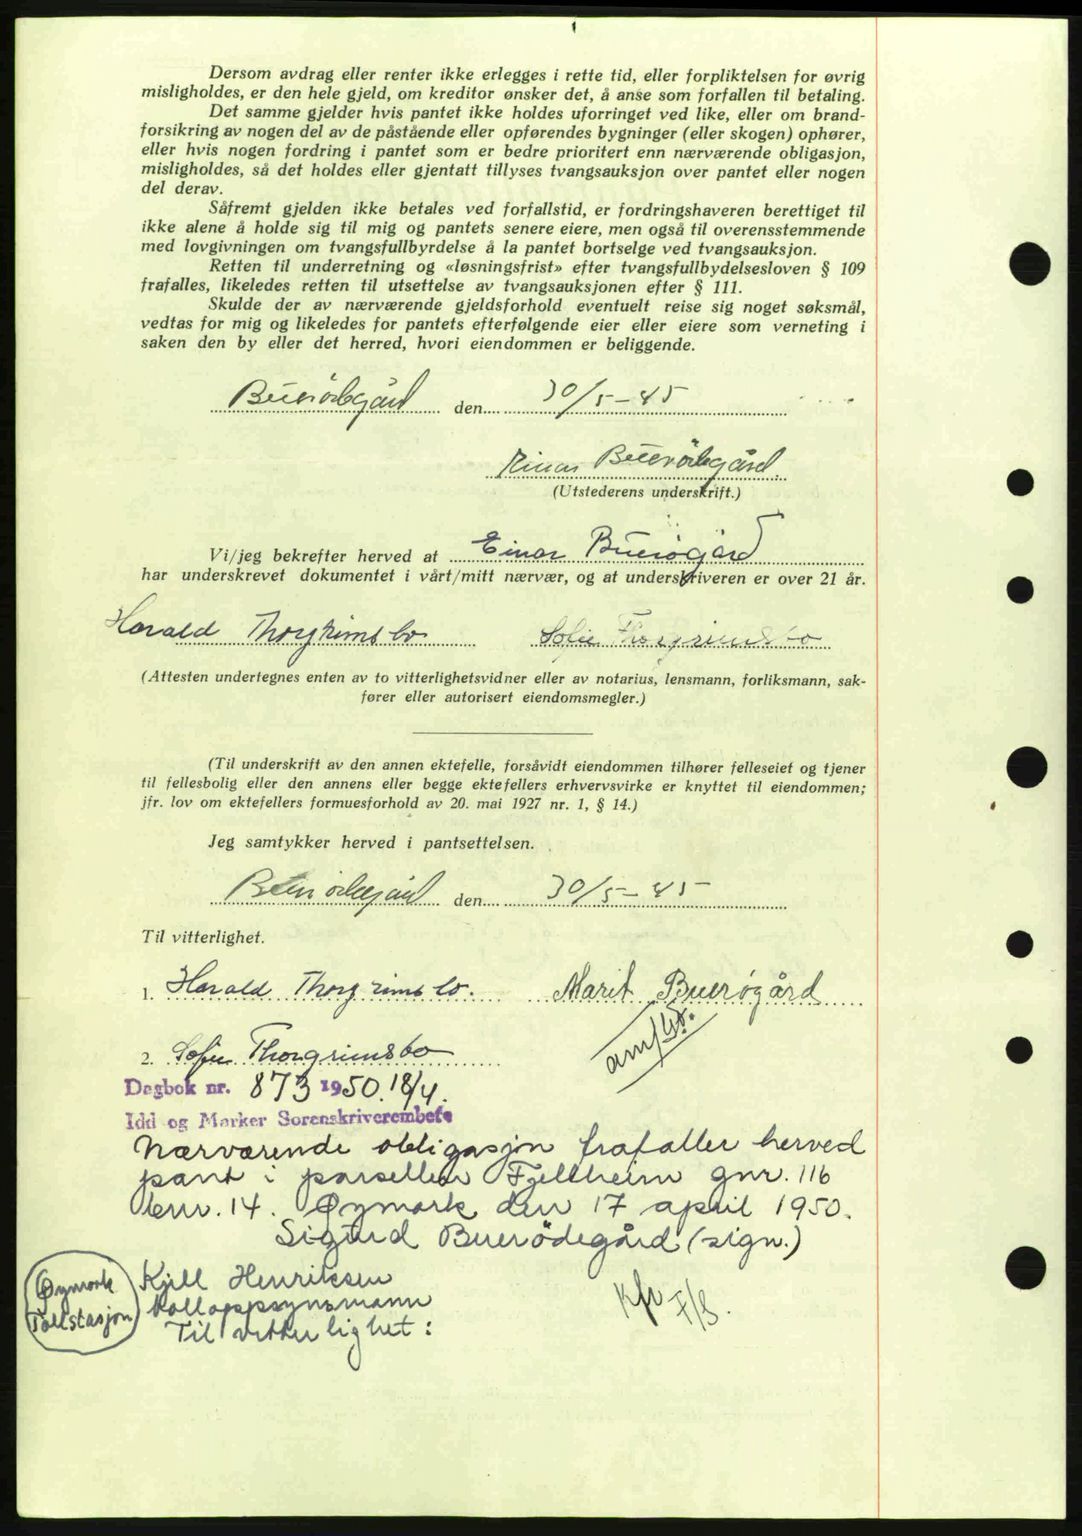 Dersom avdrag eller renter ikke erlegges i rette tid, eller forpliktelsen for øvrig
misligholdes, er den hele gjeld, om kreditor ønsker det, å anse som forfallen til betaling.
Det samme gjelder hvis pantet ikke holdes uforringet ved like, eller om brand-
forsikring av nogen del av de påstående eller opførendes bygninger (eller skogen) ophører,
eller hvis nogen fordring i pantet som er bedre prioritert enn nærværende obligasjon,
misligholdes, så det holdes eller gjentatt tillyses tvangsauksjon over pantet eller nogen
del derav.
Såfremt gjelden ikke betales ved forfallstid, er fordringshaveren berettiget til
ikke alene å holde sig til mig og pantets senere eiere, men også til overensstemmende
med lovgivningen om tvangsfullbyrdelse å la pantet bortselge ved tvangsauksjon.
Retten til underretning og «løsningsfrist» efter tvangsfullbydelsesloven § 109
frafalles, likeledes retten til utsettelse av tvangsauksjonen efter § 111.
Skulde der av nærværende gjeldsforhold eventuelt reise sig noget søksmål,
vedtas for mig og likeledes for pantets efterfølgende eier eller eiere som verneting i
saken den by eller det herred, hvori eiendommen er beliggende.
Buerödegård den 30/5-45
Einar Buerödegård.
(Utstederens underskrift.)
Vi/jeg bekrefter herved at Einar Buerögård
har underskrevet dokumentet i vårt/mitt nærvær, og at underskriveren er over 21 år.
Harald Thorgrimsbo Sofie Thorgrimsbo
(Attesten undertegnes enten av to vitterlighetsvidner eller av notarius, lensmann, forliksmann, sak-
fører eller autorisert eiendomsmegler.)
(Til underskrift av den annen ektefelle, forsåvidt eiendommen tilhører felleseiet og tjener
til fellesbolig eller den annens eller begge ektefellers erhvervsvirke er knyttet til eiendommen;
jfr. lov om ektefellers formuesforhold av 20. mai 1927 nr. 1, § 14.)
Jeg samtykker herved i pantsettelsen.
Buerödegård den 30/5-45
Til vitterlighet.
1. Harald Thorgrimsbo. Marit Buerøgård
2. Sofie Thorgrimsbo
Dagbok nr. 873 1950. 18/4.
Idd og Marker Sorenskriverembete
Nærværende obligasjon frafaller herved
pant i parsellen Fjellheim gnr. 116
bnr. 14. Øymark den 17 april 1950.
Sigurd Buerödegård (sign.)
Øymark
Tollstasjon
Kjell Henriksen
tolloppsynsmann
Til vitterlighet: